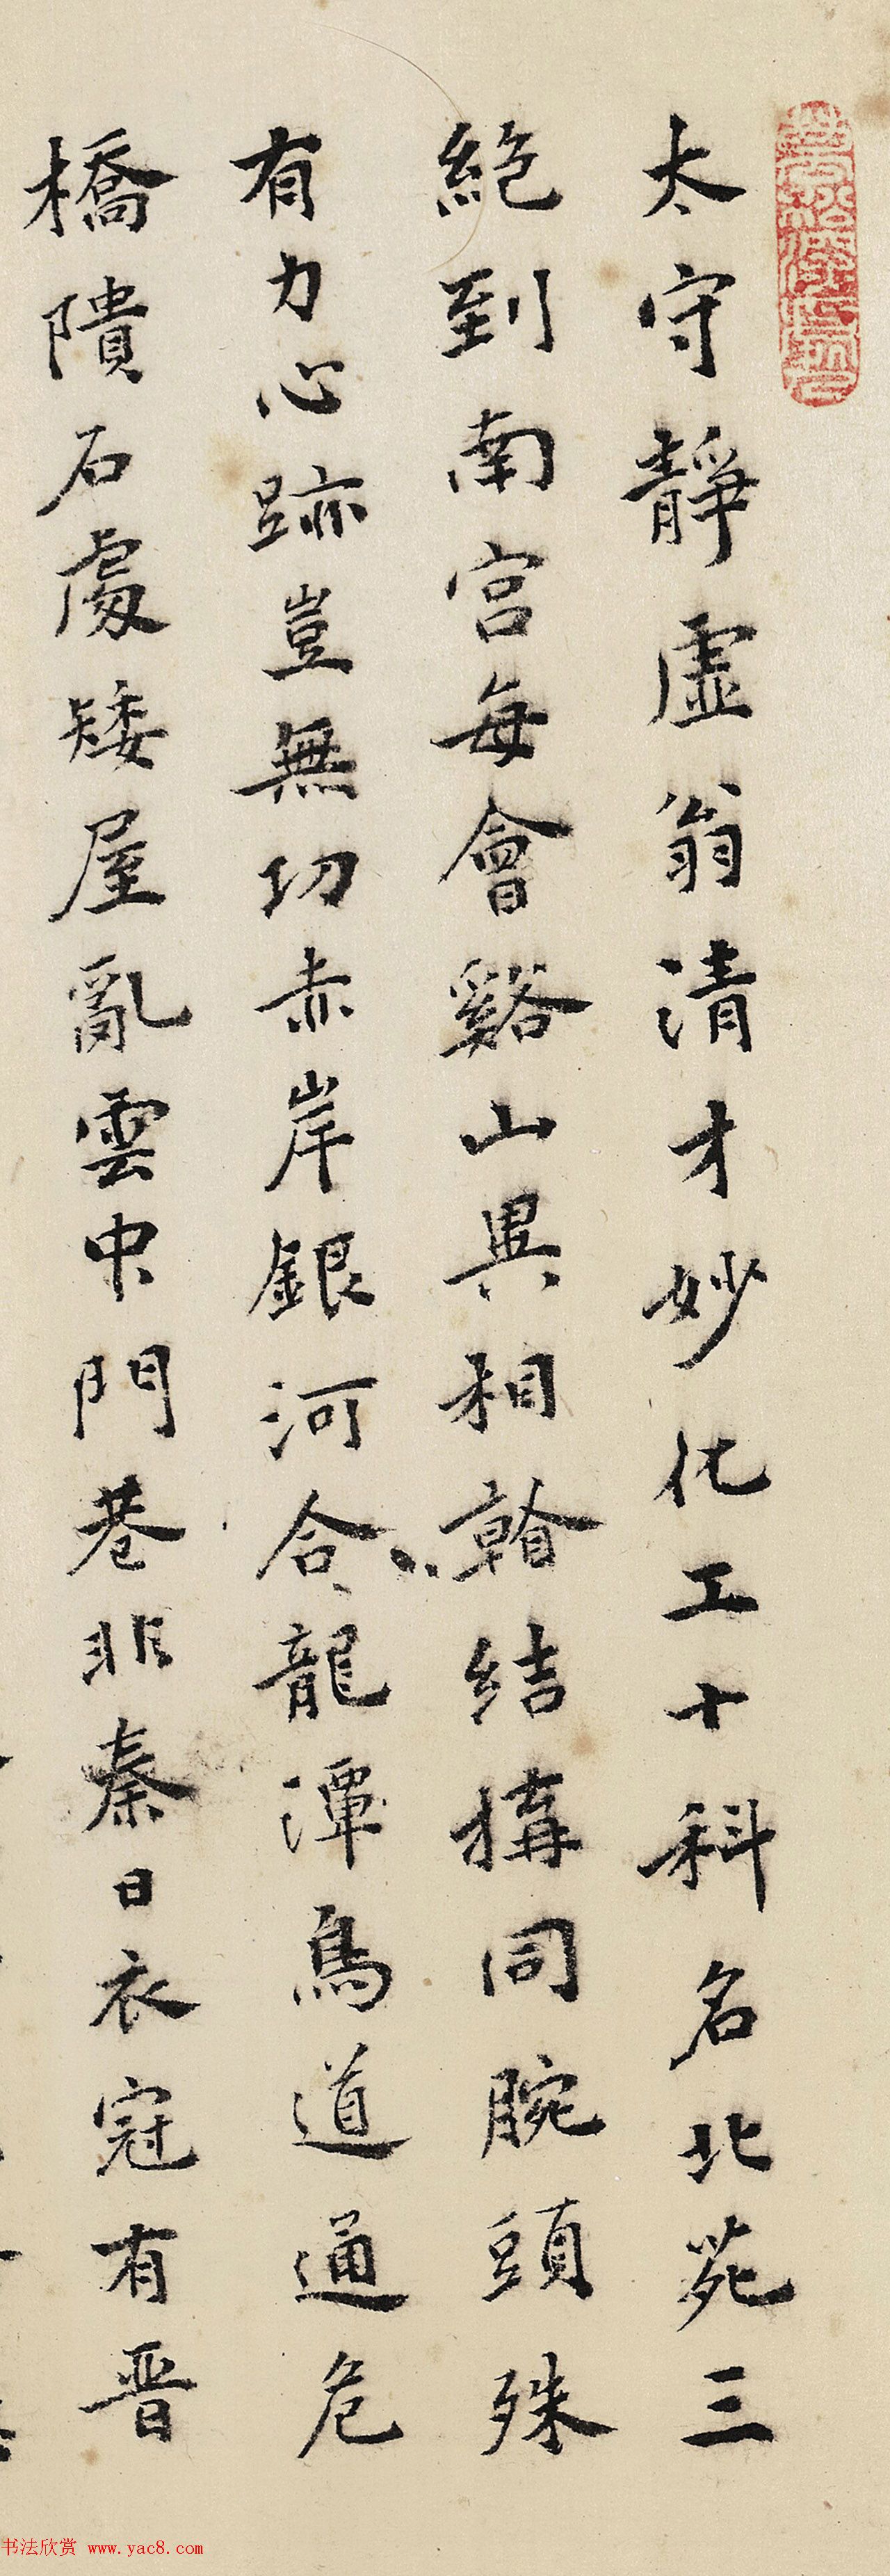 太守靜虛翁清才妙化工十科名北苑三
絶到南宮每會谿山異相
結搆同腕頭殊
有力心跡豈無功赤岸銀河合龍潭鳥道通危
橋隤石處矮屋亂雲中門巷非秦日衣冠有晋
书法欣赏 www.yac8.com